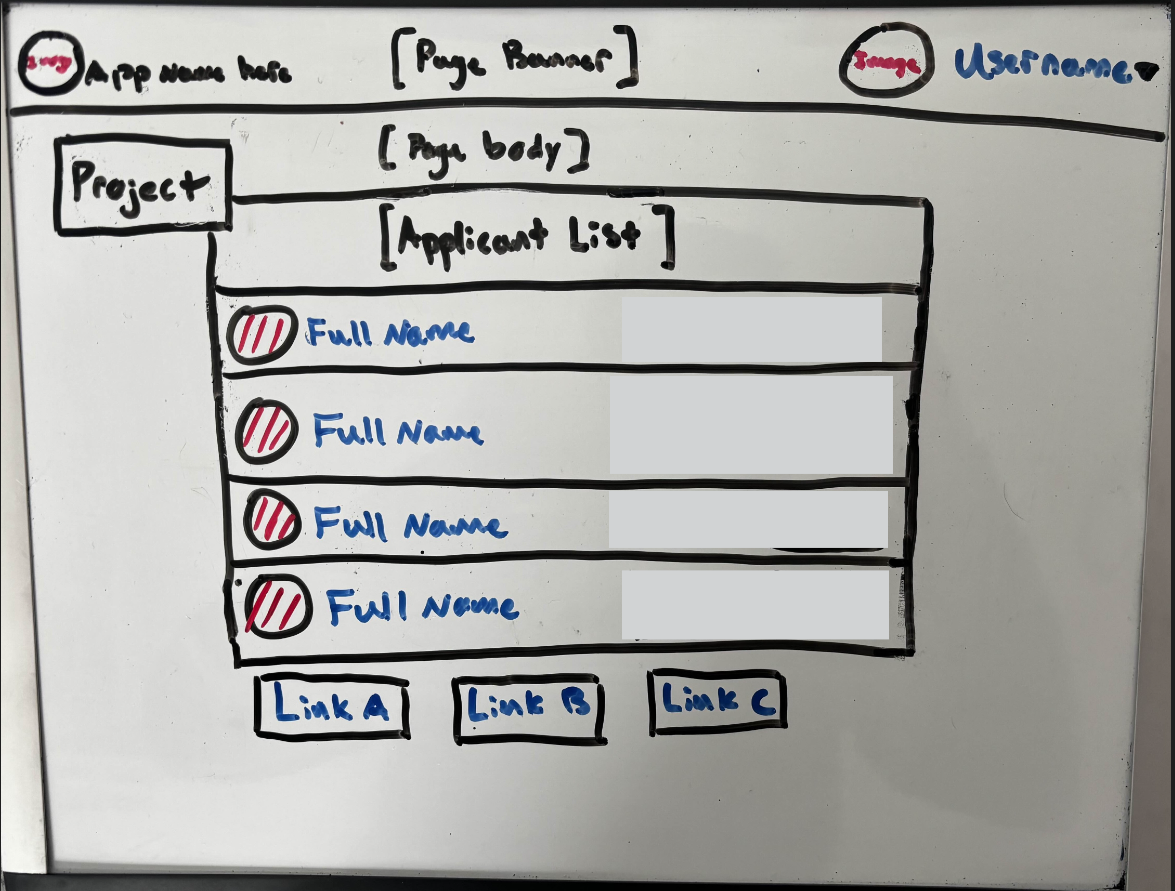 Image App Name here [Page Banner] Image Username
[Page body]
Project
[Applicant List]
Full Name
Full Name
Full Name
Full Name
Link A Link B Link C